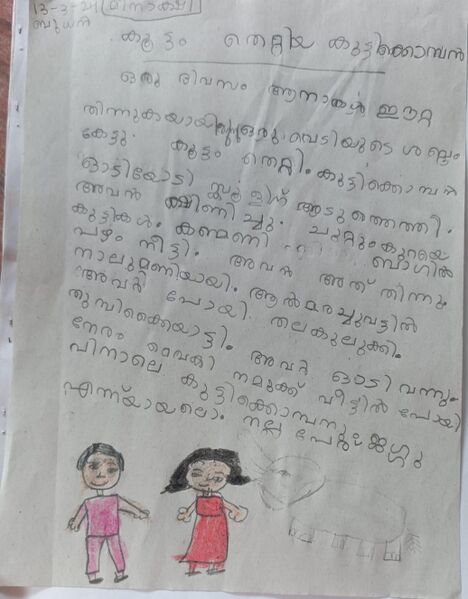 13-3-21 മീനാക്ഷി
ബുധൻ
കൂട്ടം തെറ്റിയ കുട്ടിക്കൊമ്പൻ
ഒരു ദിവസം ആനകൾ ഈറ്റ
തിന്നുകയായി ഒരു വെടിയുടെ ശബ്ദം
കേട്ടു. കൂട്ടം തെറ്റി. കുട്ടിക്കൊമ്പൻ
ഓടിയോടി സ്കൂളിന് അടുത്തെത്തി.
അവൻ ക്ഷീണിച്ചു. ചുറ്റും കുറയെ
കുട്ടികൾ. കണ്മണി ബാഗിൽ
പഴം നീട്ടി. അവൻ അത് തിന്നു.
നാലുമണിയായി. ആൽമരച്ചുവട്ടിൽ
അവർ പോയി. തലകുലുക്കി.
തുമ്പിക്കൈയാട്ടി. അവർ ഓടി വന്നു.
നേരം വൈകി നമുക്ക് വീട്ടിൽ പോയി
പിന്നാലെ കുട്ടിക്കൊമ്പനും
നല്ല പേരു ജഗ്ഗു